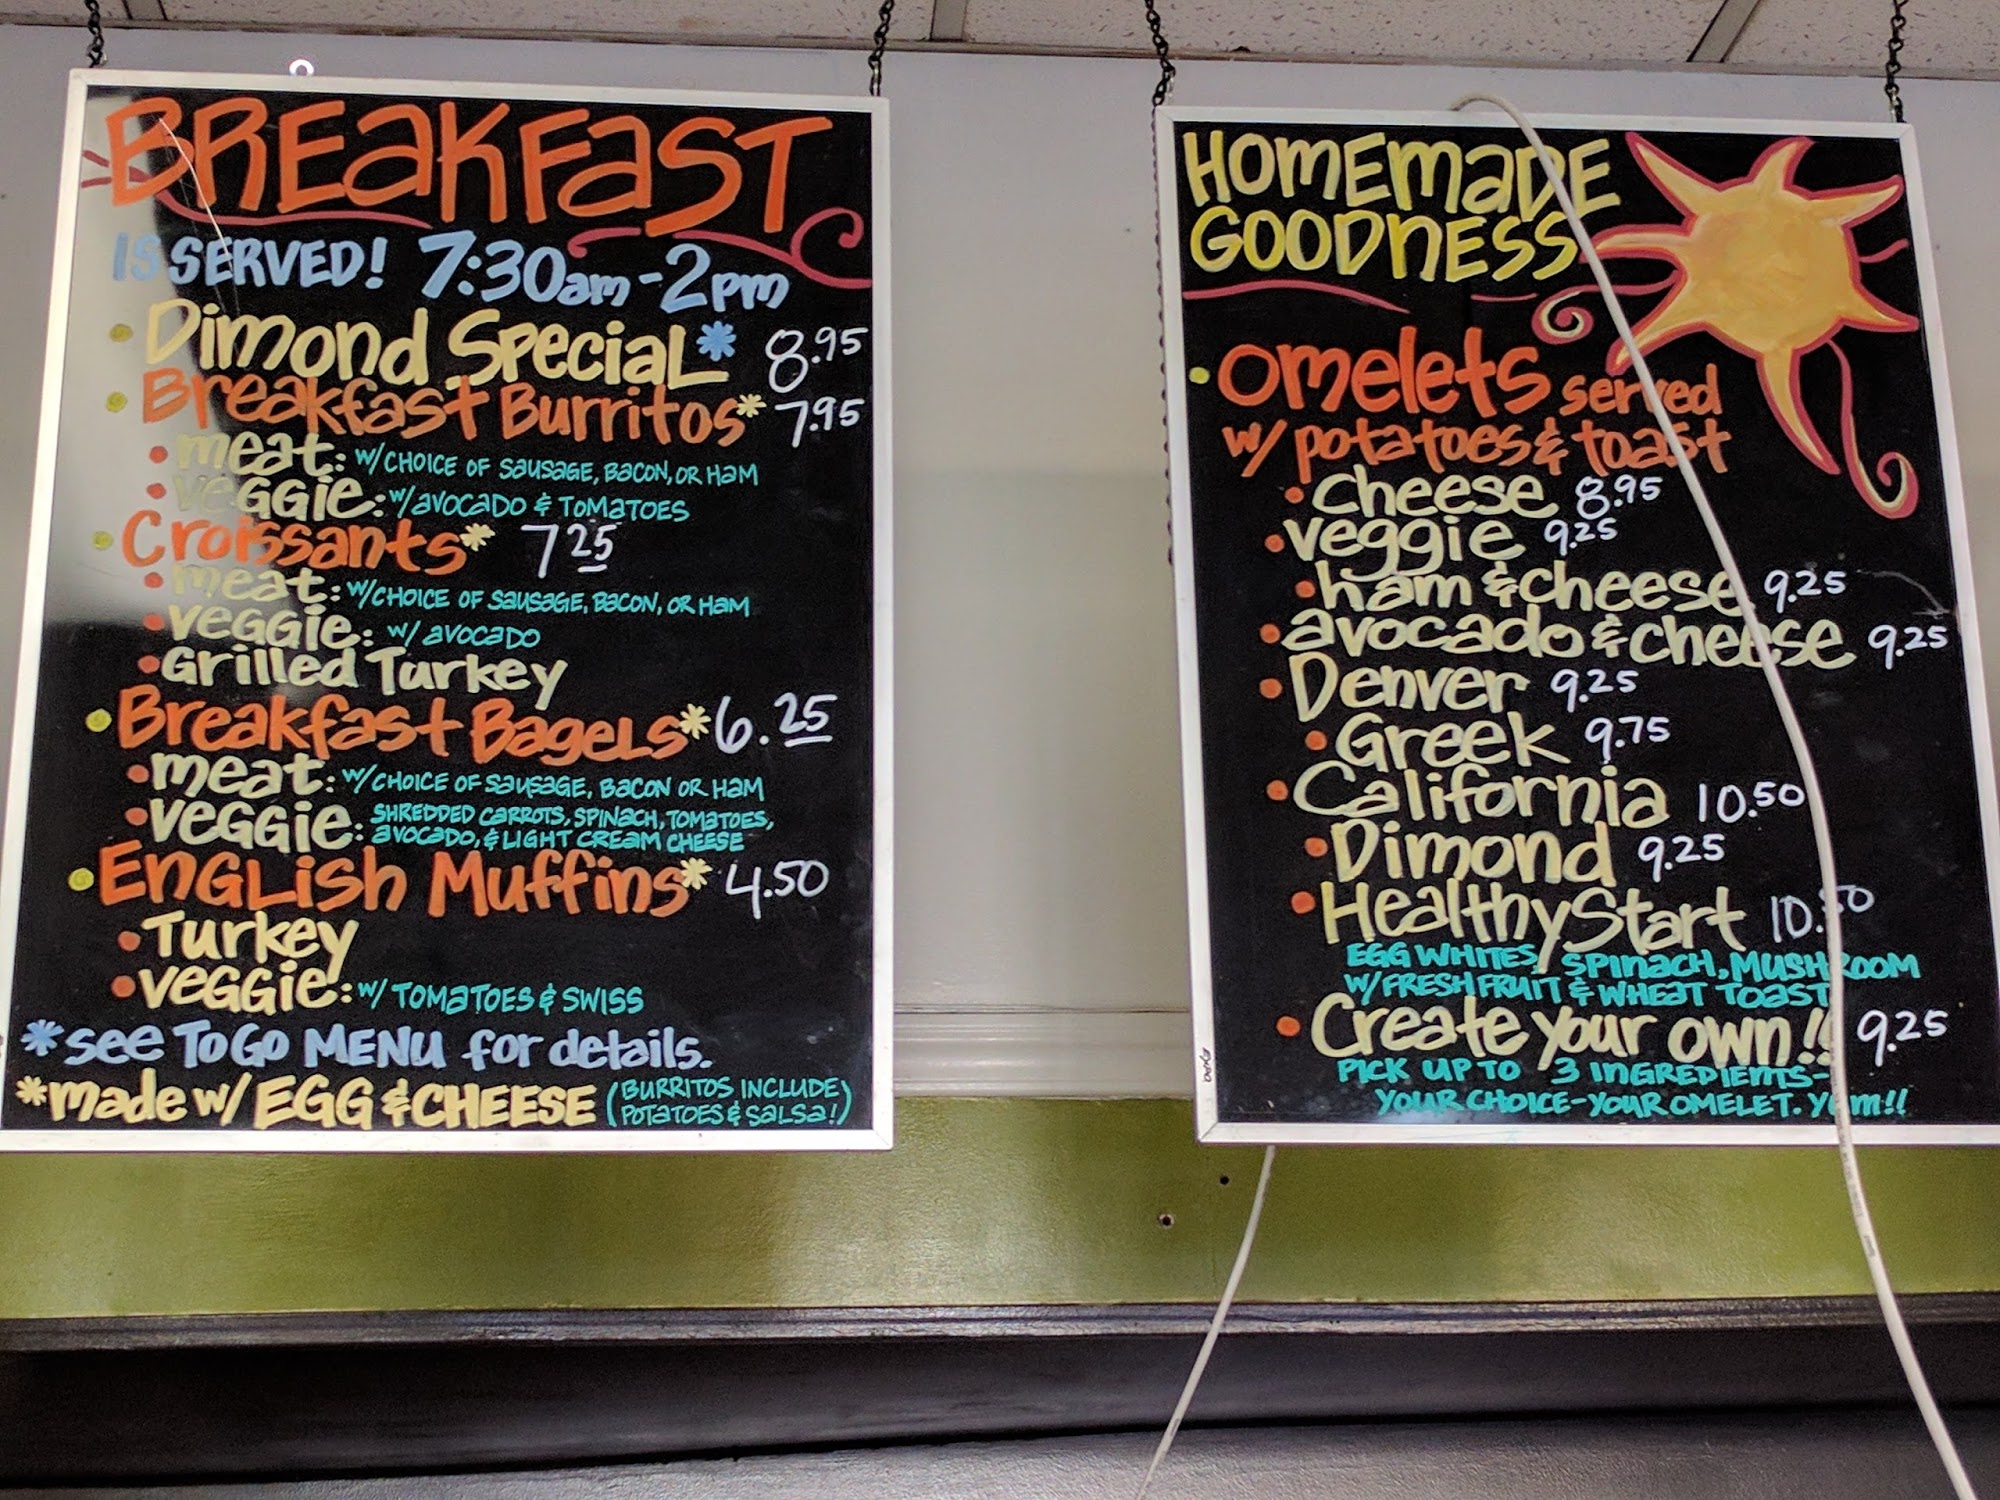 BREAKFAST
IS SERVED! 7:30am-2pm
Dimond Special* 8.95
Breakfast Burritos* 7.95
meat: w/CHOICE OF SAUSAGE, BACON, OR HAM
VEGGIE: w/AVOCADO & TOMATOES
Croissants* 7 25
meat: w/CHOICE OF SAUSAGE, BACON, OR HAM
VEGGIE: w/ AVOCADO
Grilled Turkey
Breakfast Bagels* 6.25
meat: w/CHOICE OF SAUSAGE, BACON OR HAM
VEGGIE: SHREDDED CARROTS, SPINACH, TOMATOES,
AVOCADO, & LIGHT CREAM CHEESE
English Muffins* 4.50
Turkey
VEGGIE: w/ TOMATOES & SWISS
*see TO GO MENU for details.
*made w/ EGG & CHEESE (BURRITOS INCLUDE
POTATOES & SALSA!)
HOMEMADE
GOODNESS
omelets served
w/ potatoes & toast
cheese 8.95
veggie 9.25
ham & cheese 9.25
avocado & cheese 9.25
Denver 9.25
Greek 9.75
California 10.50
Dimond 9.25
Healthy Start 10.50
EGG WHITES, SPINACH, MUSHROOM
W/ FRESH FRUIT & WHEAT TOAST
Create your own!! 9.25
PICK UP TO 3 INGREDIENTS-
YOUR CHOICE-YOUR OMELET. YUM!!